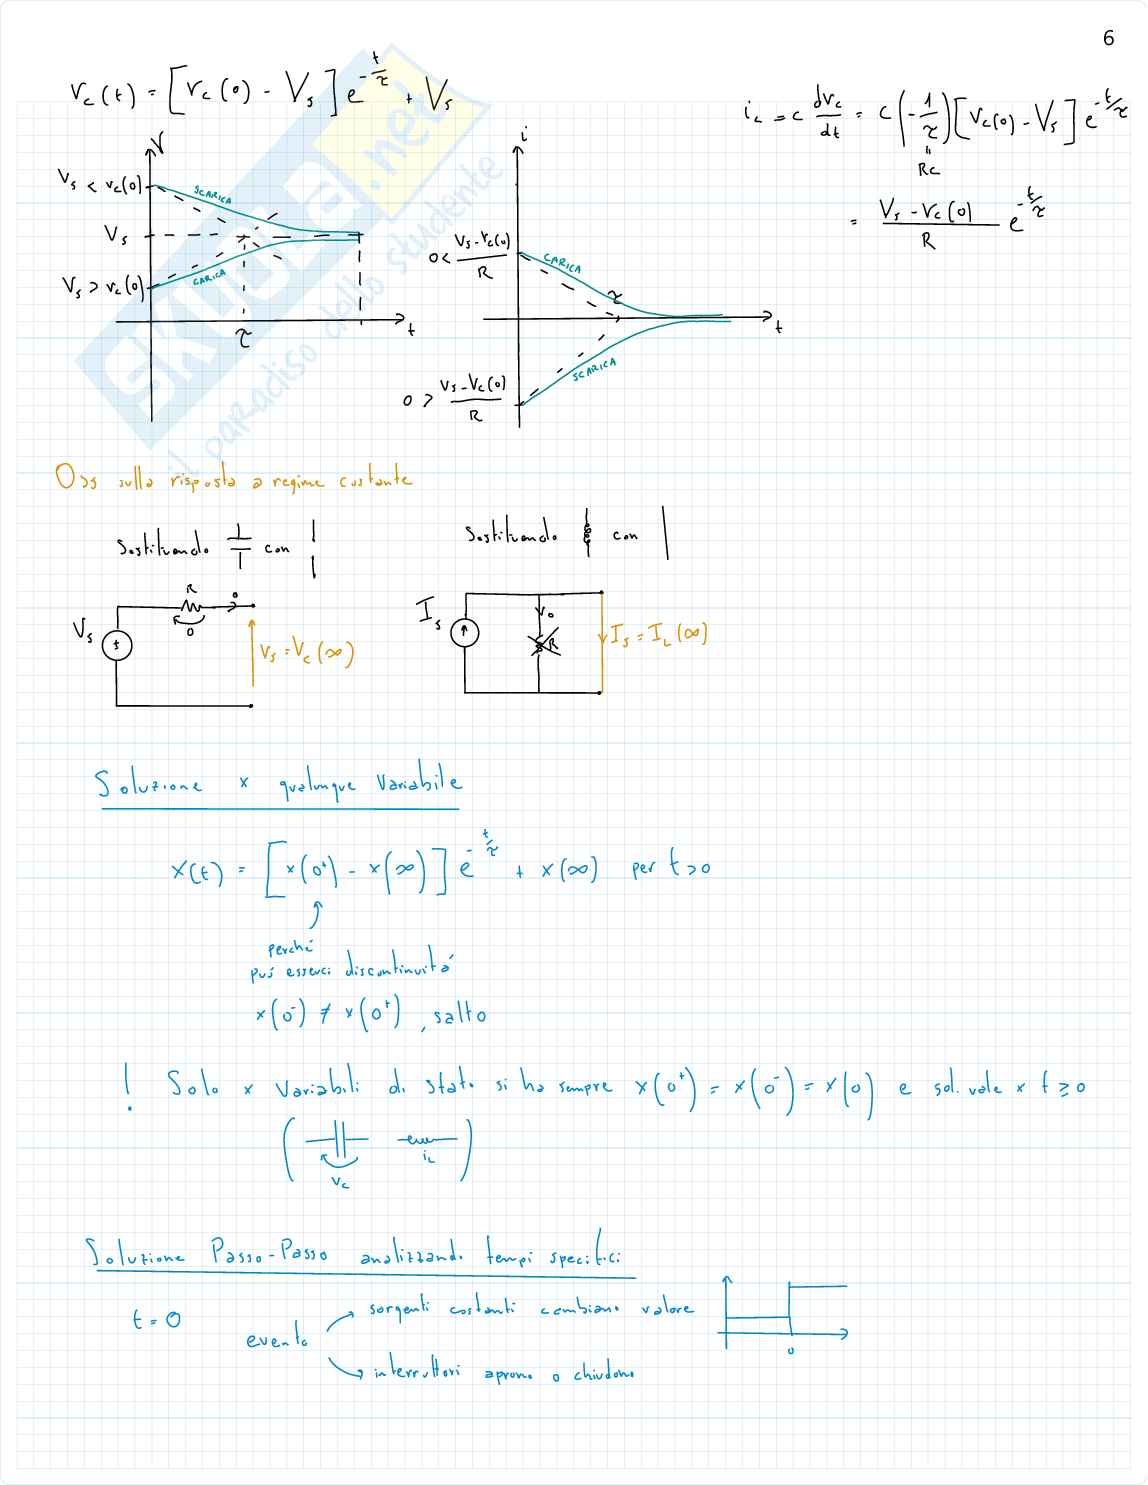 6
v_c(t) = [v_c(0) - V_s] e^{-t/τ} + V_s
i_c = C dv_c/dt = C (-1/τ) [v_c(0) - V_s] e^{-t/τ}
"
RC
= V_s - v_c(0) / R e^{-t/τ}
V
V_s < v_c(0)
SCARICA
V_s
V_s > v_c(0)
CARICA
τ
t
i
0 < V_s - v_c(0) / R
CARICA
τ
t
0 > V_s - v_c(0) / R
SCARICA
SKUOLA.net
il paradiso dello studente
Oss sulla risposta a regime costante
Sostituendo con
Sostituendo con
R
0
0
V_s
+
V_s = V_c(∞)
I_s
0
R
I_s = I_L(∞)
Soluzione x qualunque variabile
x(t) = [x(0⁺) - x(∞)] e^{-t/τ} + x(∞) per t>0
perché
può esserci discontinuità
x(0⁻) ≠ x(0⁺), salto
! Solo x variabili di stato si ha sempre x(0⁺) = x(0⁻) = x(0) e sol. vale x t ≥ 0
( v_c i_L )
Soluzione Passo-Passo analizzando tempi specifici
t = 0
evento
sorgenti costanti cambiano valore
interruttori aprono o chiudono
0